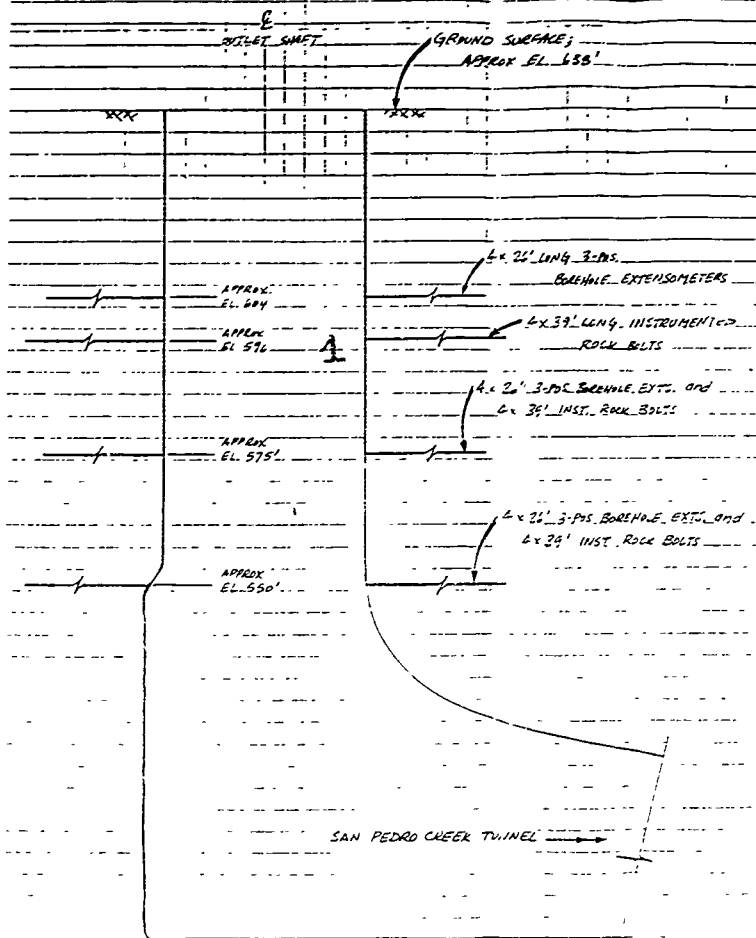 ℄
OUTLET SHAFT
GROUND SURFACE;
APPROX EL. 638'
4 x 26' LONG 3-POS.
BOREHOLE EXTENSOMETERS
APPROX
EL. 604
4 x 39' LONG INSTRUMENTED
ROCK BOLTS
APPROX
EL 596
1
4 x 26' 3-POS BOREHOLE EXTS. and
4 x 39' INST. ROCK BOLTS
APPROX
EL. 575'
4 x 26' 3-POS BOREHOLE EXTS. and
4 x 39' INST. ROCK BOLTS
APPROX
EL. 550'
SAN PEDRO CREEK TUNNEL